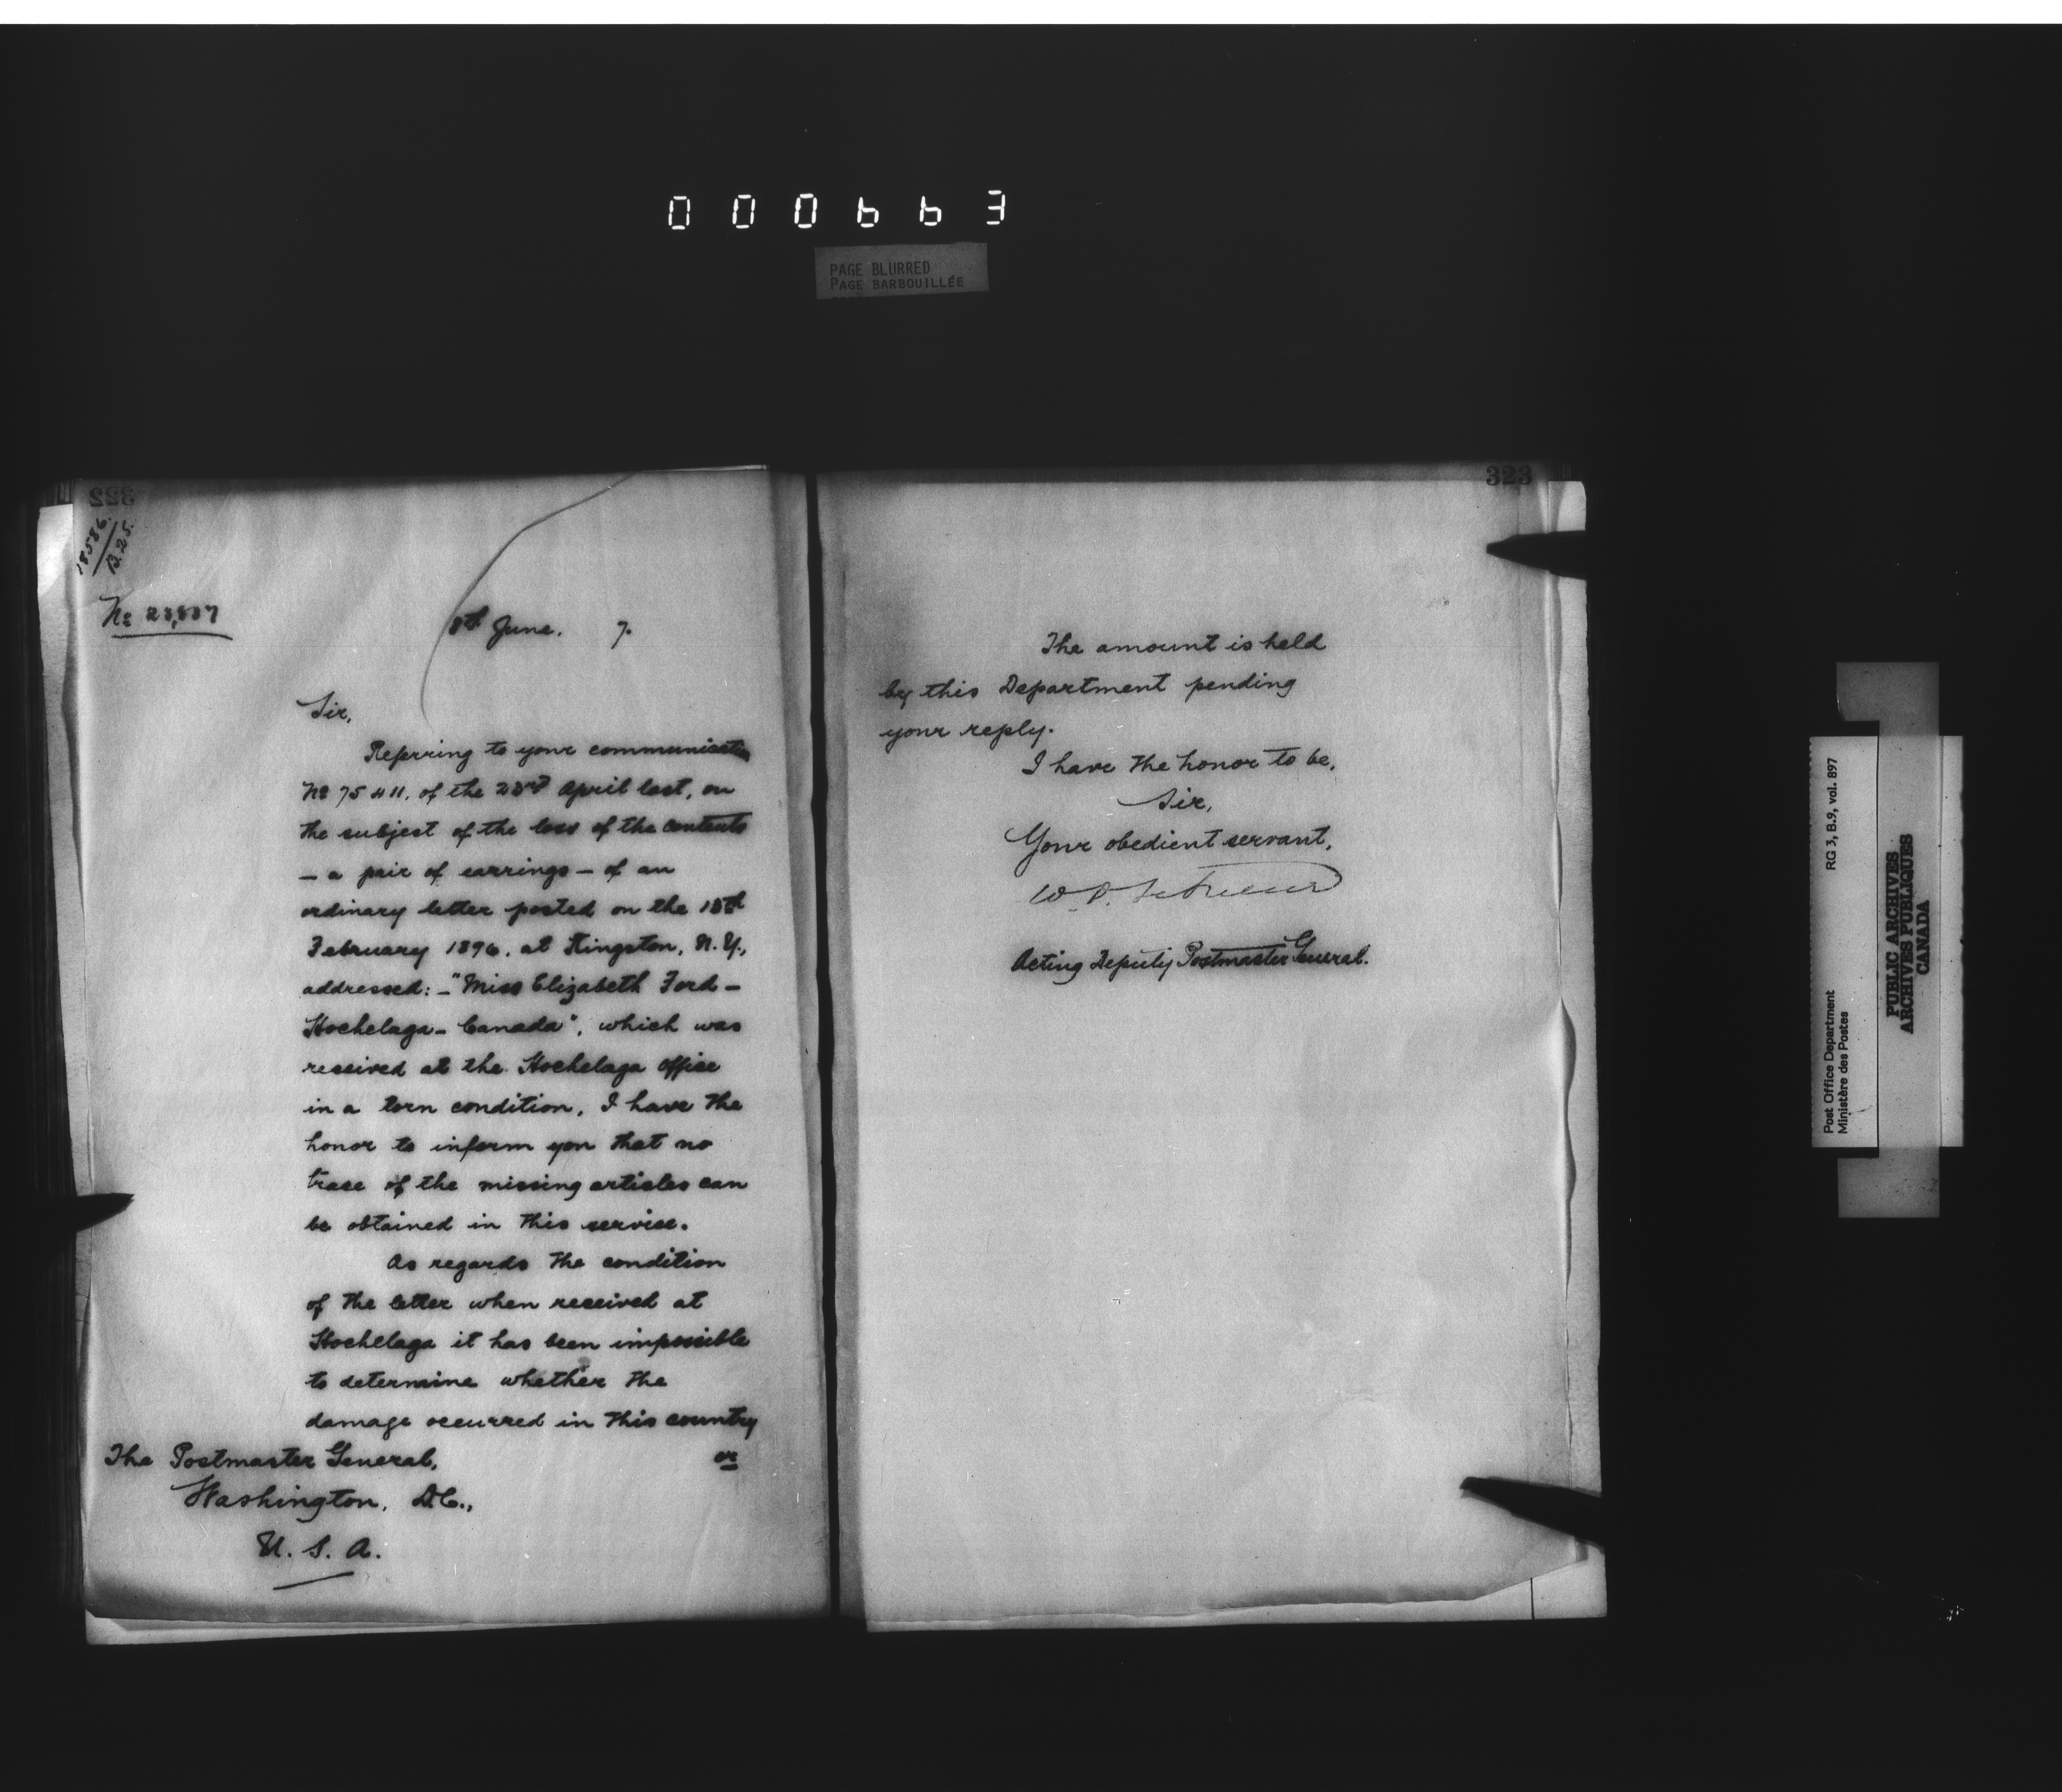 000663
PAGE BLURRED
PAGE BARBOUILLÉE
322
18586
B.25.
No 23,837
8th June. 7.
Sir,
Referring to your communication
No 75411, of the 23rd April last, on
the subject of the loss of the contents
— a pair of earrings — of an
ordinary letter posted on the
February 1896, at Kingston, N.Y.,
addressed: — "Miss Elizabeth Ford —
Hochelaga — Canada", which was
received at the Hochelaga Office
in a torn condition, I have the
honor to inform you that no
trace of the missing articles can
be obtained in this service.
As regards the condition
of the letter when received at
Hochelaga it has been impossible
to determine whether the
damage occurred in this country
or
The Postmaster General,
Washington, D.C.,
U. S. A.
323
The amount is held
by this Department pending
your reply.
I have the honor to be,
Sir,
Your obedient servant,
Acting Deputy Postmaster General.
Post Office Department
Ministère des Postes
RG 3, B.9, vol. 897
PUBLIC ARCHIVES
ARCHIVES PUBLIQUES
CANADA